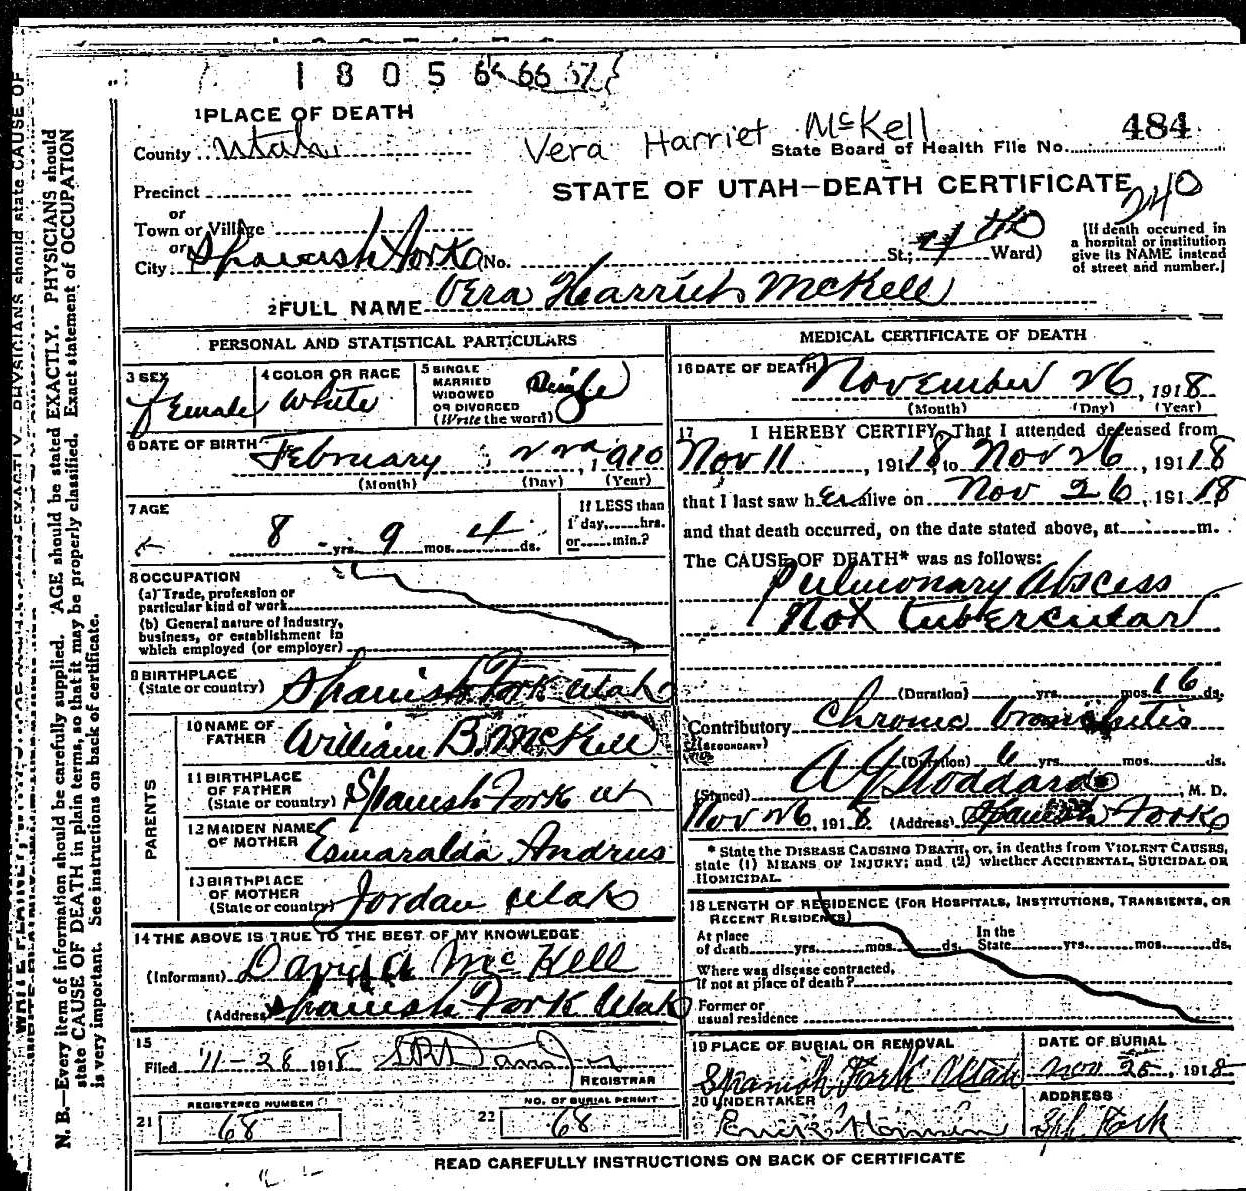 1 8 0 5 6
1 PLACE OF DEATH
County Utah
Vera Harriet McKell
State Board of Health File No. 484
Precinct
STATE OF UTAH—DEATH CERTIFICATE
240
or
Town or Village
or
City Spanish Fork (No. St.; 4th Ward)
[If death occurred in
a hospital or institution
give its NAME instead
of street and number.]
2 FULL NAME Vera Harriet McKell
PERSONAL AND STATISTICAL PARTICULARS
3 SEX
Female
4 COLOR OR RACE
White
5 SINGLE
MARRIED
WIDOWED
OR DIVORCED
(Write the word)
Single
6 DATE OF BIRTH
February 22nd, 1910
(Month) (Day) (Year)
7 AGE
8 yrs. 9 mos. 4 ds.
If LESS than
1 day, hrs.
or min.?
8 OCCUPATION
(a) Trade, profession or
particular kind of work
(b) General nature of industry,
business, or establishment in
which employed (or employer)
9 BIRTHPLACE
(State or country) Spanish Fork Utah
PARENTS
10 NAME OF
FATHER William B. McKell
11 BIRTHPLACE
OF FATHER
(State or country) Spanish Fork Ut
12 MAIDEN NAME
OF MOTHER Esmaralda Andrus
13 BIRTHPLACE
OF MOTHER
(State or country) Jordan Utah
14 THE ABOVE IS TRUE TO THE BEST OF MY KNOWLEDGE
(Informant) David A McKell
(Address) Spanish Fork Utah
15
Filed 11-28 1918
REGISTRAR
REGISTERED NUMBER
21 68
NO. OF BURIAL PERMIT
22 68
MEDICAL CERTIFICATE OF DEATH
16 DATE OF DEATH
November 26, 1918
(Month) (Day) (Year)
17 I HEREBY CERTIFY, That I attended deceased from
Nov 11, 19118 to Nov 26, 19118
that I last saw her alive on Nov 26, 19118
and that death occurred, on the date stated above, at m.
The CAUSE OF DEATH* was as follows:
Pulmonary Abscess
Not Tubercular
(Duration) yrs. mos. 16 ds.
Contributory Chronic bronchitis
(SECONDARY)
(Duration) 6 yrs. mos. ds.
(Signed) Stoddard, M. D.
Nov 26, 1918 (Address) Spanish Fork
* State the DISEASE CAUSING DEATH, or, in deaths from VIOLENT CAUSES,
state (1) MEANS OF INJURY; and (2) whether ACCIDENTAL, SUICIDAL OR
HOMICIDAL.
18 LENGTH OF RESIDENCE (FOR HOSPITALS, INSTITUTIONS, TRANSIENTS, OR
RECENT RESIDENTS)
At place
of death yrs. mos. ds.
In the
State yrs. mos. ds.
Where was disease contracted,
if not at place of death?
Former or
usual residence
19 PLACE OF BURIAL OR REMOVAL
Spanish Fork Utah
DATE OF BURIAL
Nov 28, 1918
20 UNDERTAKER
ADDRESS
Sph. Fork
READ CAREFULLY INSTRUCTIONS ON BACK OF CERTIFICATE
N. B.—Every item of information should be carefully supplied. AGE should be stated EXACTLY. PHYSICIANS should
state CAUSE OF DEATH in plain terms, so that it may be properly classified. Exact statement of OCCUPATION
is very important. See instructions on back of certificate.